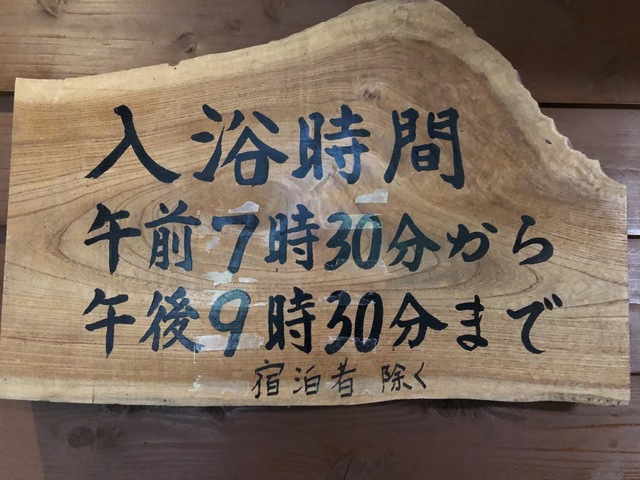 入浴時間
午前7時30分から
午後9時30分まで
宿泊者 除く